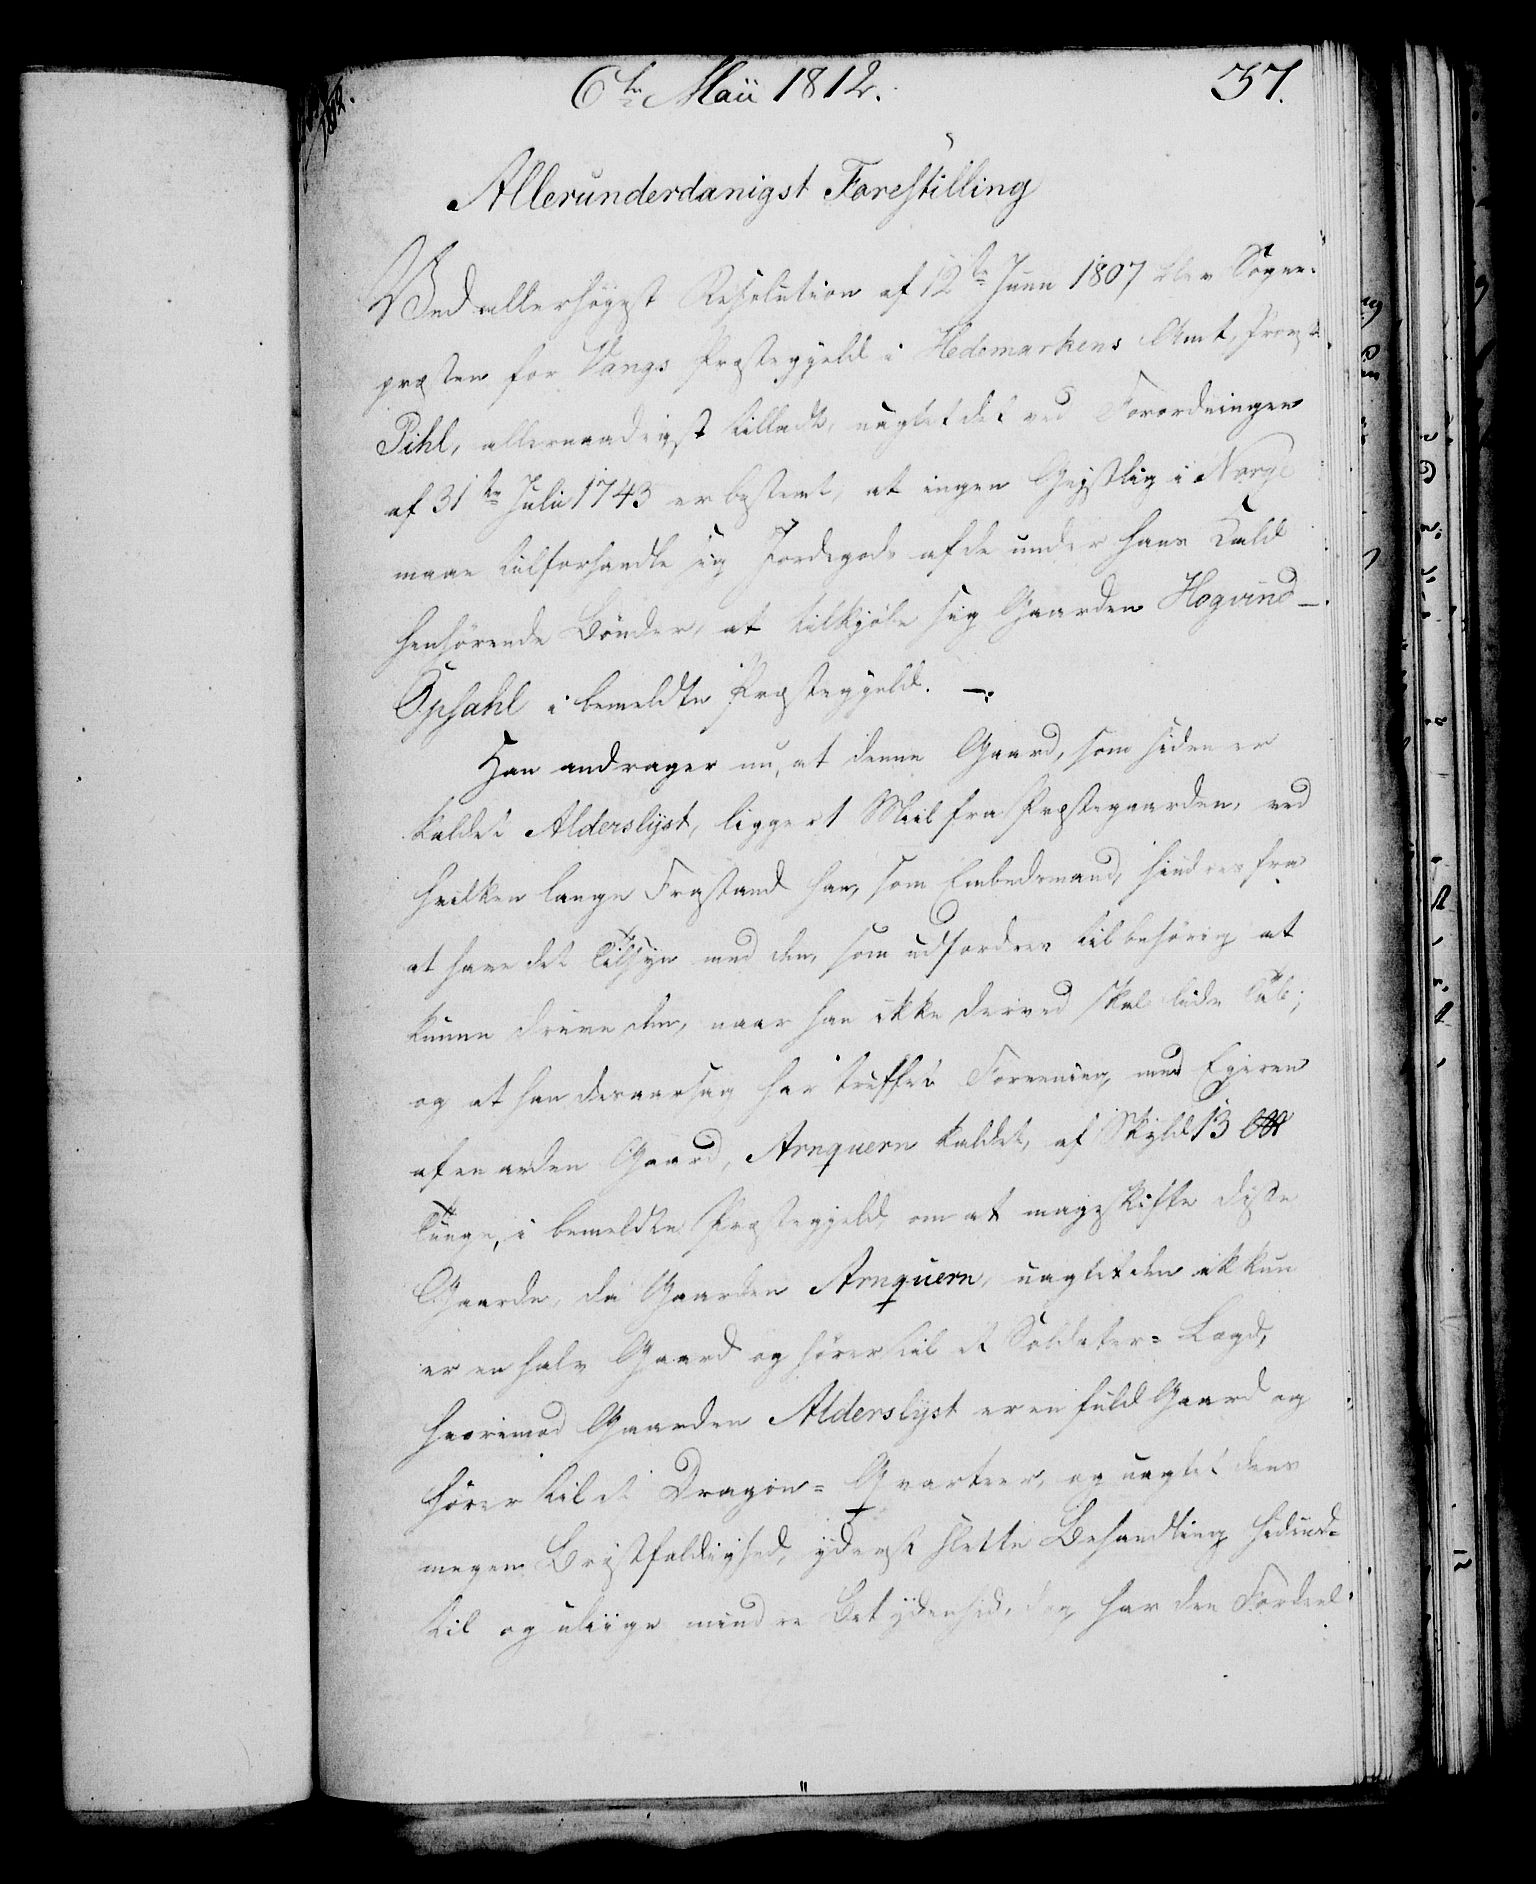 6te Maii 1812.
37.
Allerunderdanigst Forestilling
Ved allerhøyest Resolution af 12te Junii 1807 blev Sogne-
præsten for Vangs Præstegjeld i Hedemarkens Amt, Provst
Pihl, allernaadigst tilladt, uagtet det ved Forordningen
af 31te Julii 1743 er bestemt, at ingen Gejstlig i Norge
maae tilforhandle sig Jordegods af de under hans Kald
henhørende Bönder, at tilkjøbe sig Gaarden Hogvind-
Opsahl i bemeldte Præstegjeld. -.
Han andrager nu, at denne Gaard, som siden er
kaldet Alderslÿst, ligger 1 Miil fra Præstegaarden, ved
hvilken lange Frastand han, som Embedsmand, hindres fra
at have det Tilsyn med den, som udfordres til behörig at
kunne drive den, naar han ikke derved skal lide Tab;
og at han desaarsag har truffet Foreening med Ejeren
af en anden Gaard, Arnquern kaldet, af Skyld 13
Tunge, i bemeldte Præstegjeld, om at mageskifte disse
Gaarde, da Gaarden Arnquern, uagtet den ikkun
er en halv Gaard og hörer til et Soldater= Lægd,
hvorimod Gaarden Alderslÿst er en fuld Gaard og
hörer til et Dragon= Qvarteer, og uagtet dens
megen Bröstfældighed, ÿderst slette Behandling hidind=
til og uliige mindre Betÿdenhed, dog har den Fordeel